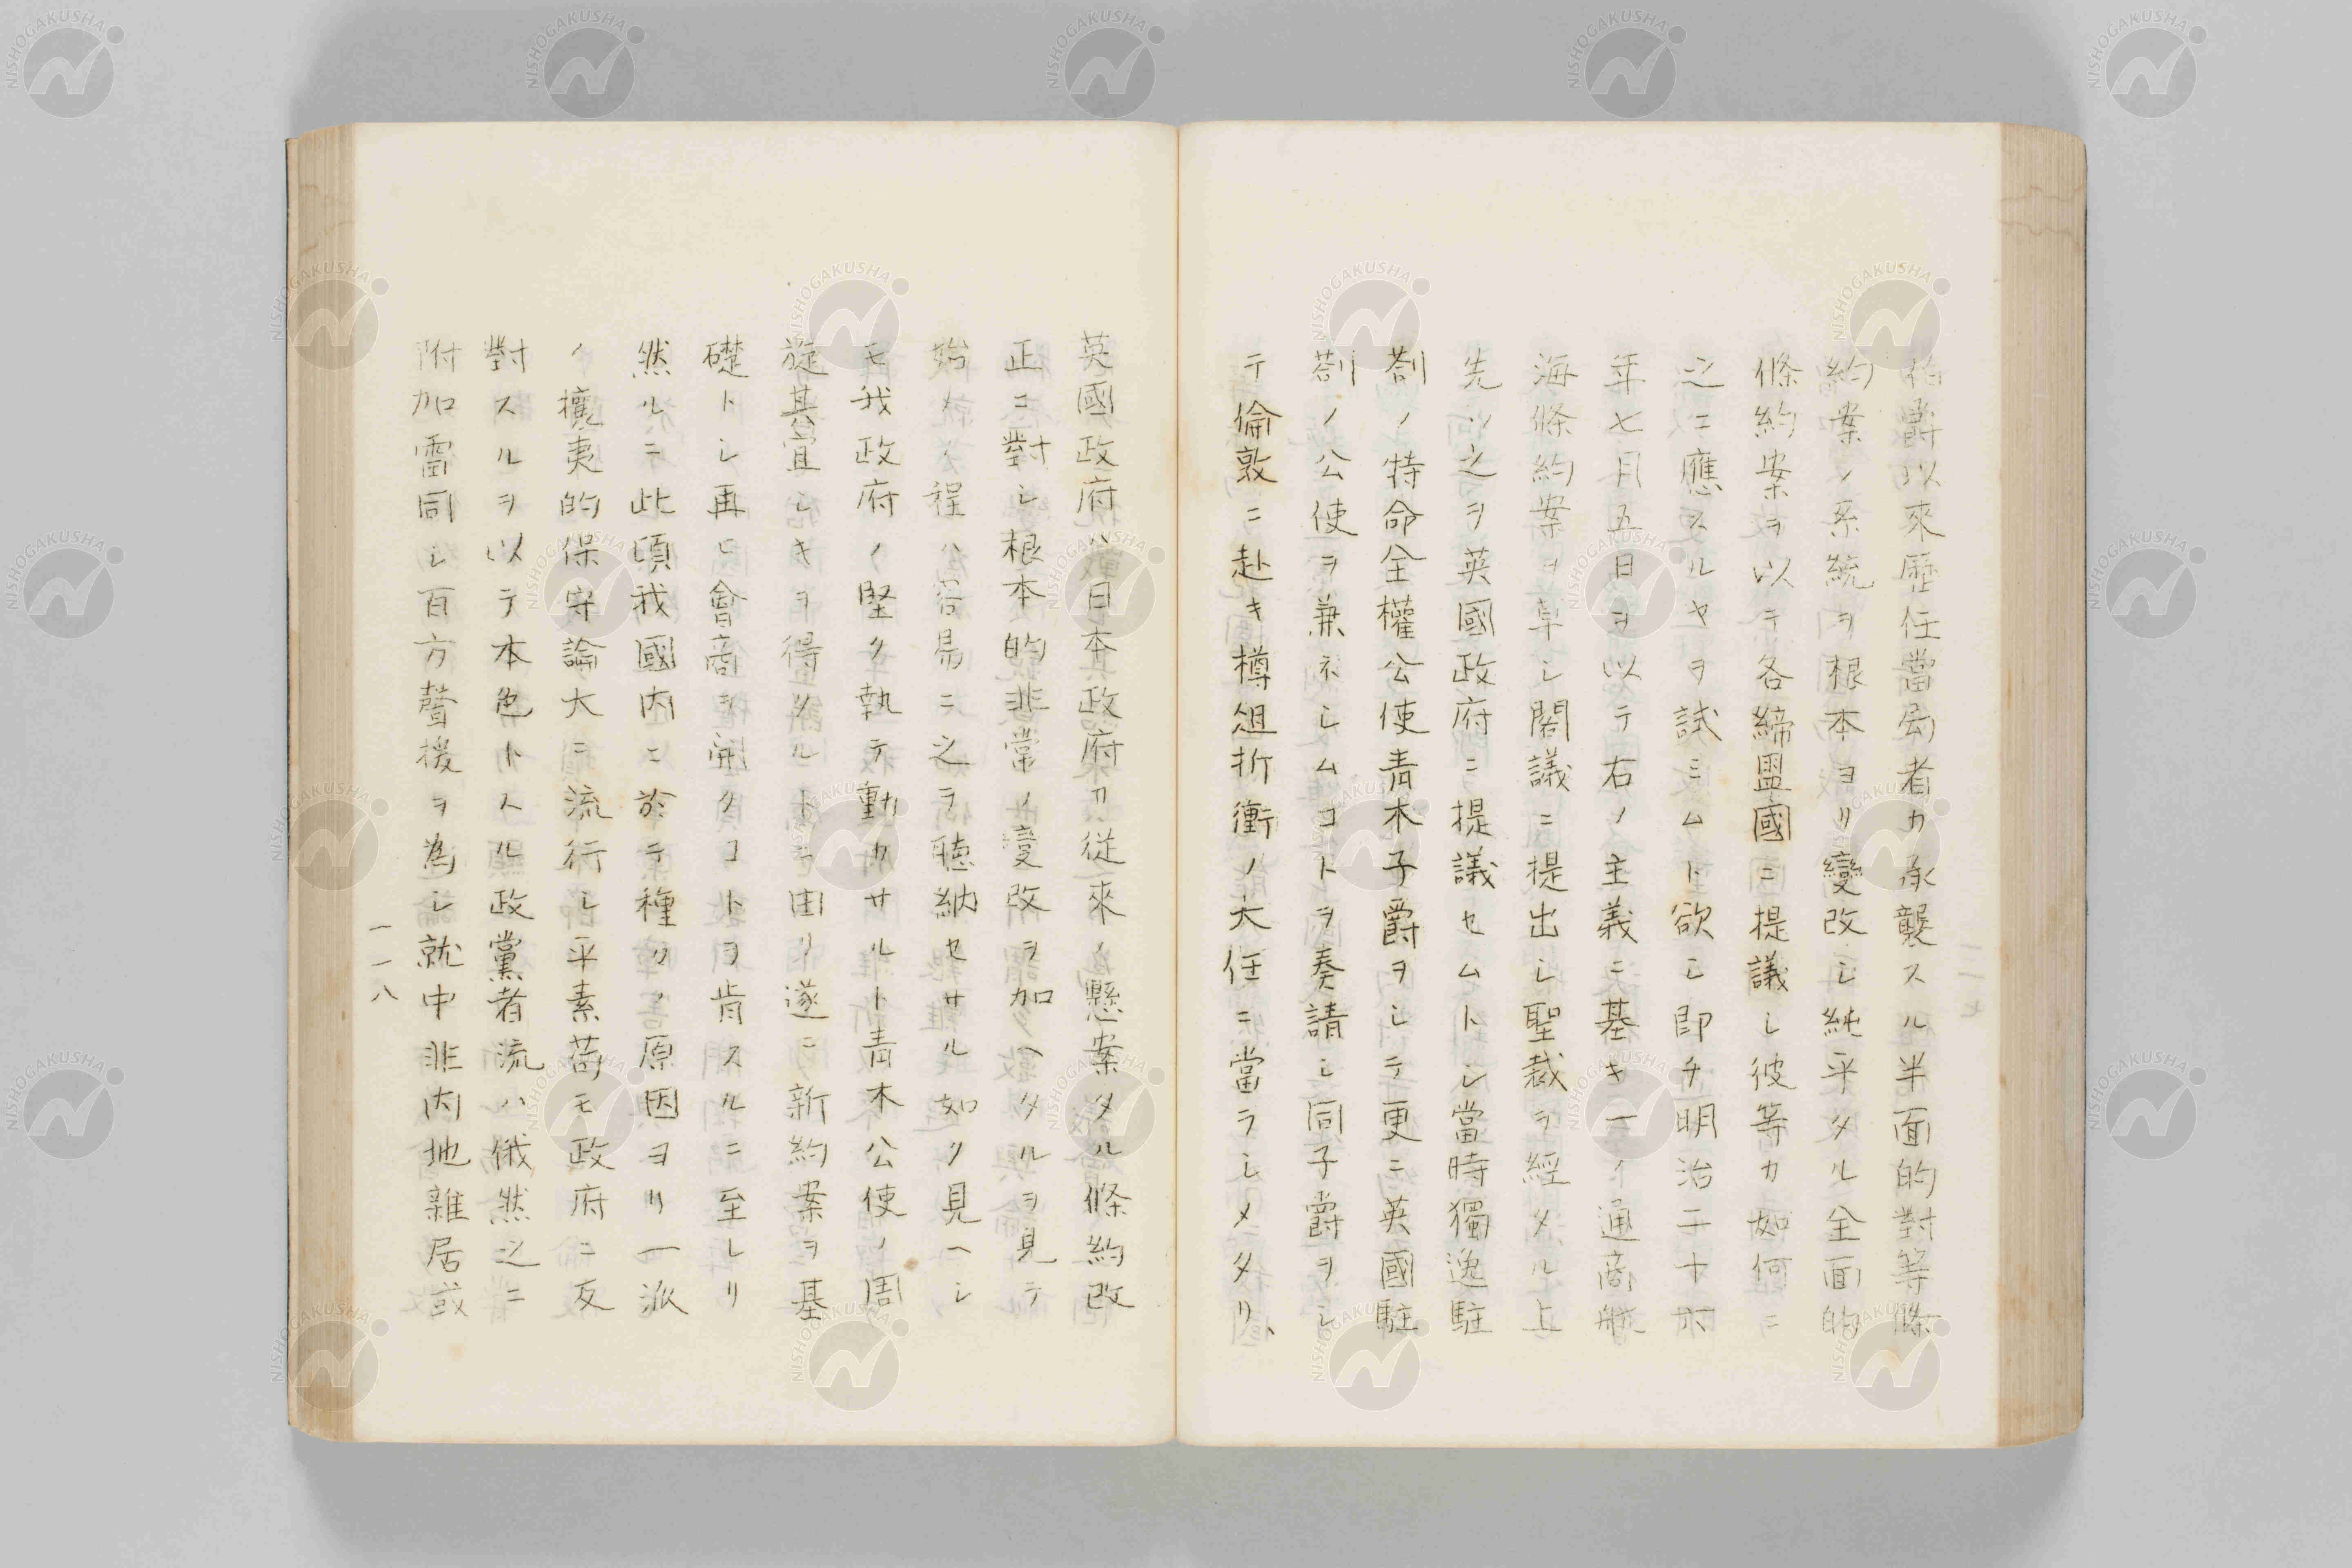 伯爵以來歴任當局者カ承襲スル半面的對等條
約案ノ系統ヲ根本ヨリ變改シ純乎タル全面的
條約案ヲ以テ各締盟國ニ提議シ彼等カ如何ニ
之ニ應スルヤヲ試ミムト欲シ即チ明治二十六
年七月五日ヲ以テ右ノ主義ニ基キ一ノ通商航
海條約案ヲ草シ閣議ニ提出シ聖裁ヲ經タル上
先ツ之ヲ英國政府ニ提議セムトシ當時獨逸駐
剳ノ特命全權公使青木子爵ヲシテ更ニ英國駐
剳ノ公使ヲ兼ネシムコトヲ奏請シ同子爵ヲシ
テ倫敦ニ赴キ樽俎折衝ノ大任ニ當ラシメタリ、
一一七
英國政府ハ日本政府カ從來ノ懸案タル條約改
正ニ對シ根本的非常ノ變改ヲ加ヘタルヲ見テ
始ノ程ハ容易ニ之ヲ聴納セサル如ク見ヘシ
モ我政府ノ堅ク執テ動カサルト青木公使ノ周
旋其宜シキヲ得タルトニ由リ遂ニ新約案ヲ基
礎トシ再ヒ會商ヲ開クコトヲ肯スルニ至レリ
然ルニ此頃我國内ニ於テ種々ノ原因ヨリ一派
ノ攘夷的保守論大ニ流行シ平素苟モ政府ニ反
對スルヲ以テ本色トスル政黨者流ハ俄然之ニ
附加雷同シ百方聲援ヲ為シ就中非内地雜居或
一一八
NISHOGAKUSHA